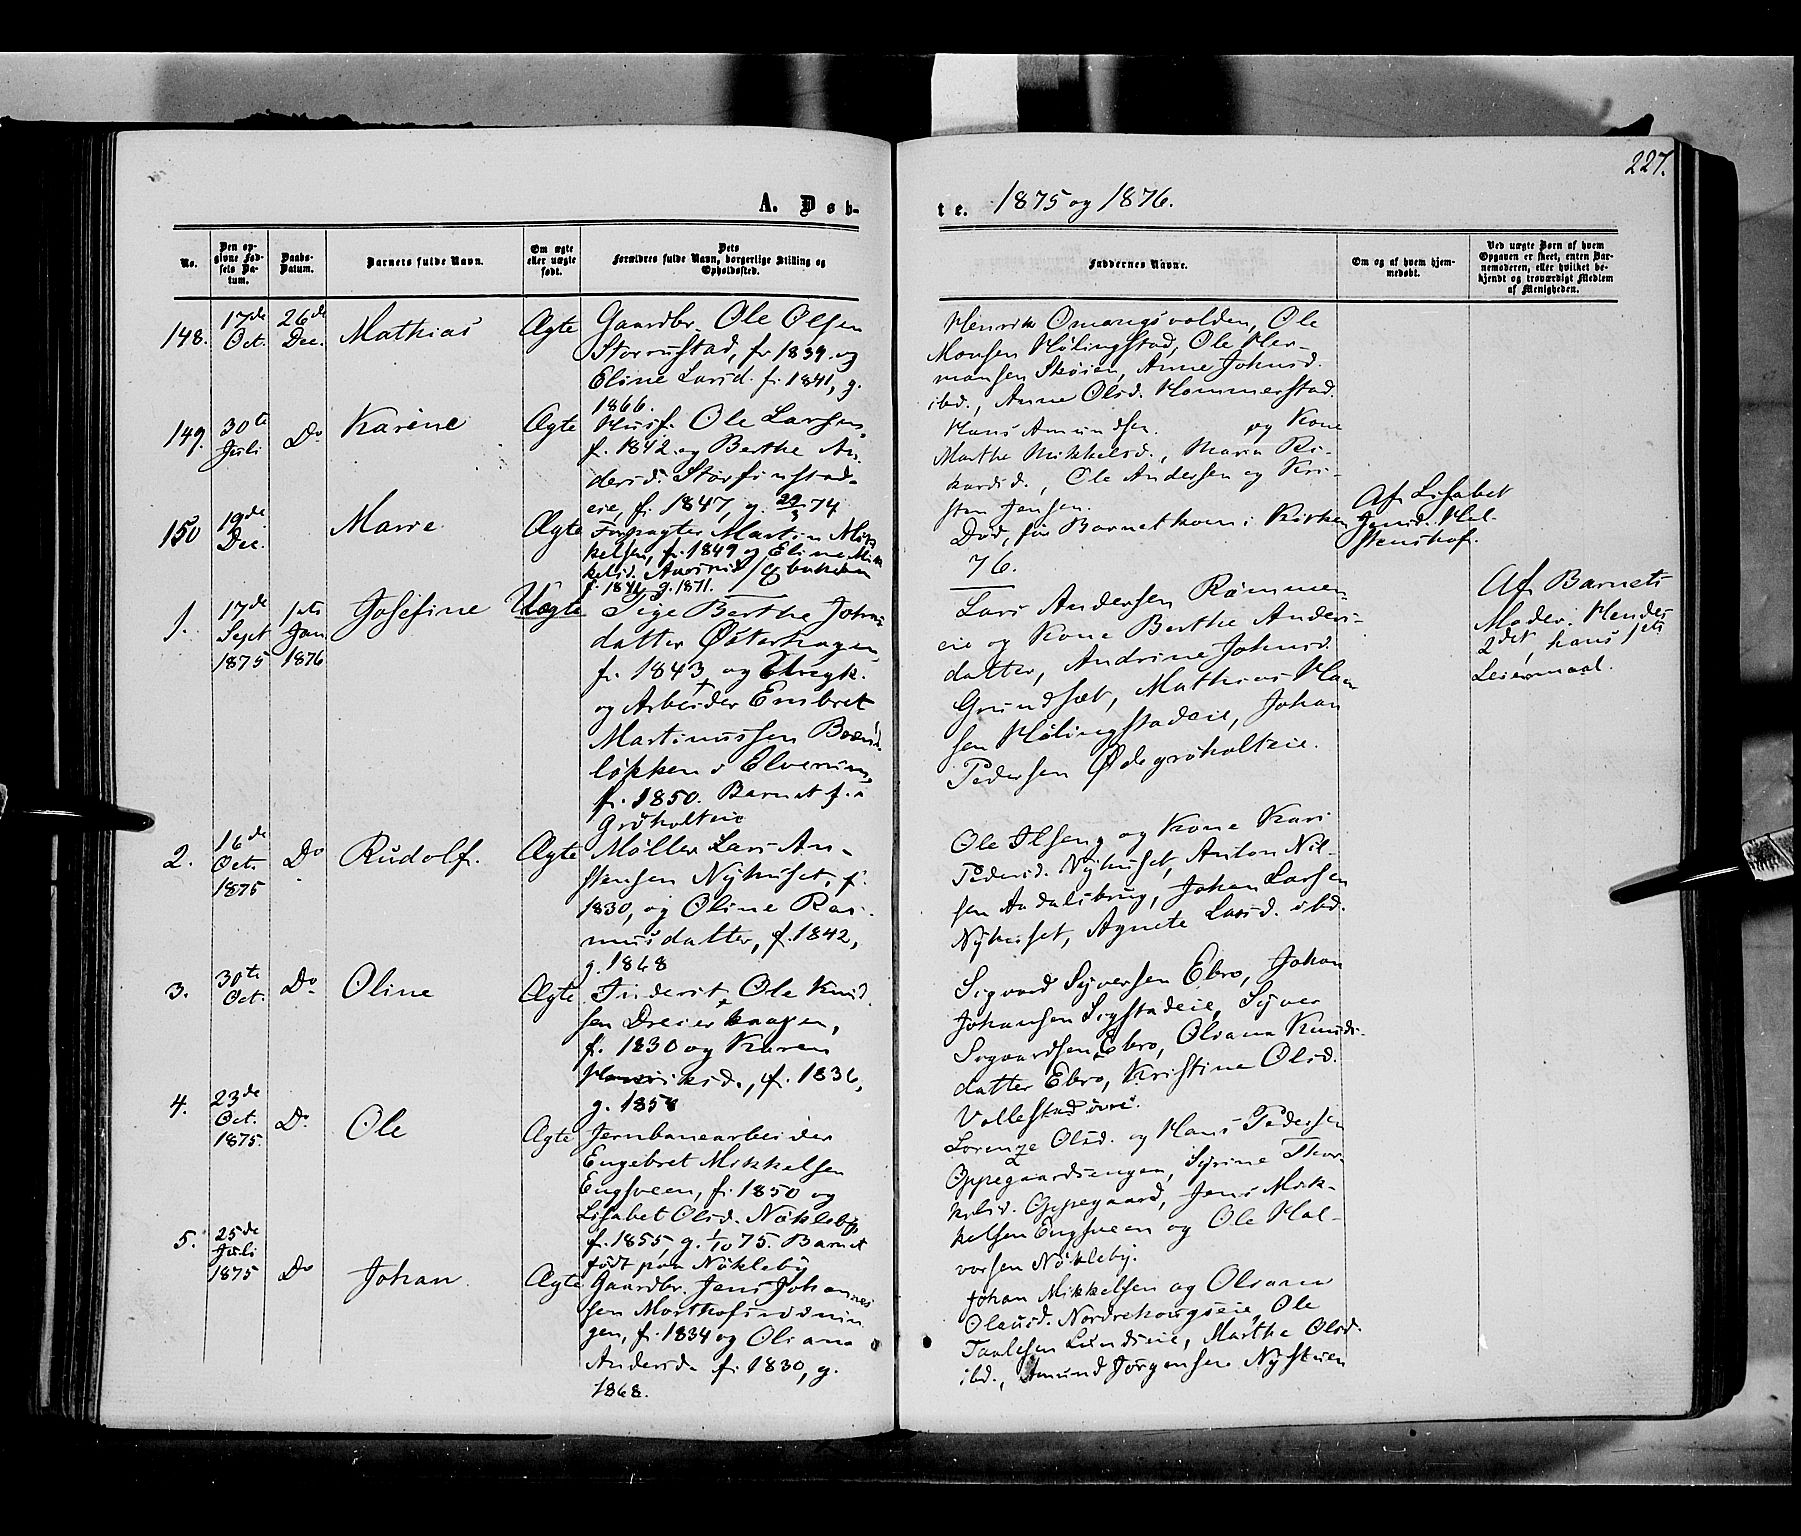 227.
A. Døb-
te. 1875 og 1876.
No.
Den op-
givne Fød-
sels Da-
tum.
Daabs-
Datum.
Barnets fulde Navn.
Om ægte
eller uægte
født.
Dets
Forældres fulde Navn, borgerlige Stilling og
Opholdssted.
Faddernes Navne.
Om og af hvem hjem-
medøbt.
Ved uægte Børn af hvem
Opgaven er skeet, enten Bar-
nemoderen, eller hvilket be-
kjendt og troværdigt Medlem
af Menigheden.
148.
17de
Oct.
26de
Dec.
Mathias
Ægte
Gaardbr. Ole Olsen
Storrustad, f. 1839 og
Eline Larsd. f. 1841, g.
1866.
Henrik Omangsvolden, Ole
Monsen Hølingstad, Ole Her-
mansen Skøien, Anne Johnsd.
ibd., Anne Olsd. Hommerstad.
149.
30te
Juli
Do
Karine
Ægte
Husf. Ole Larsen,
f. 1842 og Berthe An-
dersd. Storfinstad-
eie, f. 1847, g. 29/3 74
Hans Amundsen. og Kone
Marthe Mikkelsd., Maria Ri-
kardsd., Ole Andersen og Kri-
sten Jensen.
150
19de
Dec.
Marie
Ægte
Forpagter Martin Mik-
kelsen, f. 1849 og Eline Mik-
kelsd.
f. 1846 g. 1871.
Død, før Barnet kom i Kirken
Af Lisabet
Jensd. Hel-
stenshof.
76.
1.
17de
Sept
1875
1ste
Jan
1876
Josefine
Uægte
Pige Berthe Johns-
datter Østerhagen,
f. 1843 og Ungk.
og Arbeider Embret
Martinussen Bænd-
løkken i Elverum,
f. 1850. Barnet f. i
Grøholteie
Lars Andersen Rømmen-
eie og Kone Berthe Anders-
datter, Andrine Johnsd.
Grundset, Mathias Han-
sen Hølingstadeie, Johan
Pedersen Ødegrøholteie.
Af Barnets
Moder. Hendes
2det, hans 1ste
Leiermaal.
2.
16de
Oct.
1875
Do
Rudolf.
Ægte
Møller Lars An-
stensen Nyhuset, f.
1830, og Oline Ras-
musdatter, f. 1842,
g. 1868
Ole Olsen og Kone Kari
Pedersd. Nyhuset, Anton Nil-
sen Aadalsbrug, Johan Larsen
Nyhuset, Agnete Larsd. ibd.
3.
30te
Oct.
Do
Oline
Ægte
Inderst Ole Knud-
sen Dreierhaagen,
f. 1830 og Karen
Henriksd., f. 1836,
g. 1858
Sigvard Syversen Ebro, Johan
Johansen Sygstadeie, Syver
Sigvardsen Ebro, Oliana Knuds-
datter Ebro, Kristine Olsd.
Vollestad øvre.
4.
23de
Oct.
1875.
Do
Ole
Ægte
Jernbanearbeider
Engebret Mikkelsen
Engsveen, f. 1850 og
Lisabet Olsd. Nökleby,
f. 1855, g. 1/10 75. Barnet
født paa Nökleby
Lorenze Olsd. og Hans Pedersen
Oppegaardsengen, Syrine Thor-
kelsd. Oppegaard, Jens Mik-
kelsen Engsveen og Ole Hal-
vorsen Nökleby.
5.
25de
Juli
1875
Do
Johan
Ægte
Gaardbr. Jens Johannes
sen Morthofsrødnin-
gen, f. 1834 og Oliana
Andersd. f. 1830, g.
1868.
Johan Mikkelsen og Oliana
Olausd. Nordrehougseie, Ole
Paulsen Lundseie, Marthe Olsd.
ibd., Amund Jørgensen Nystuen